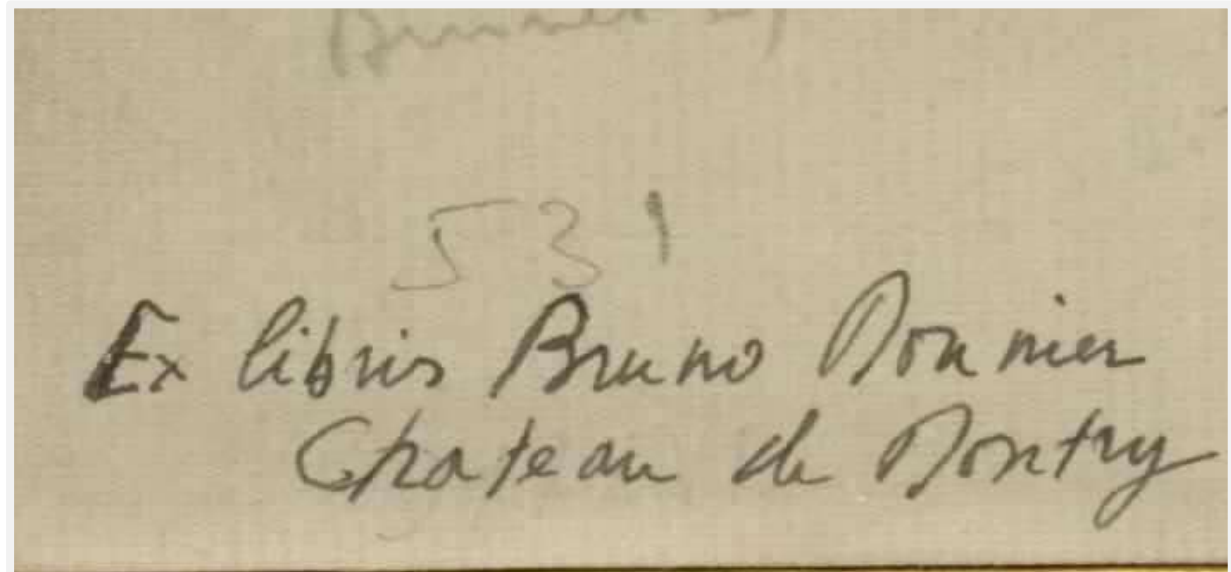 531
Ex libris Bruno Monnier
Chateau de Montry